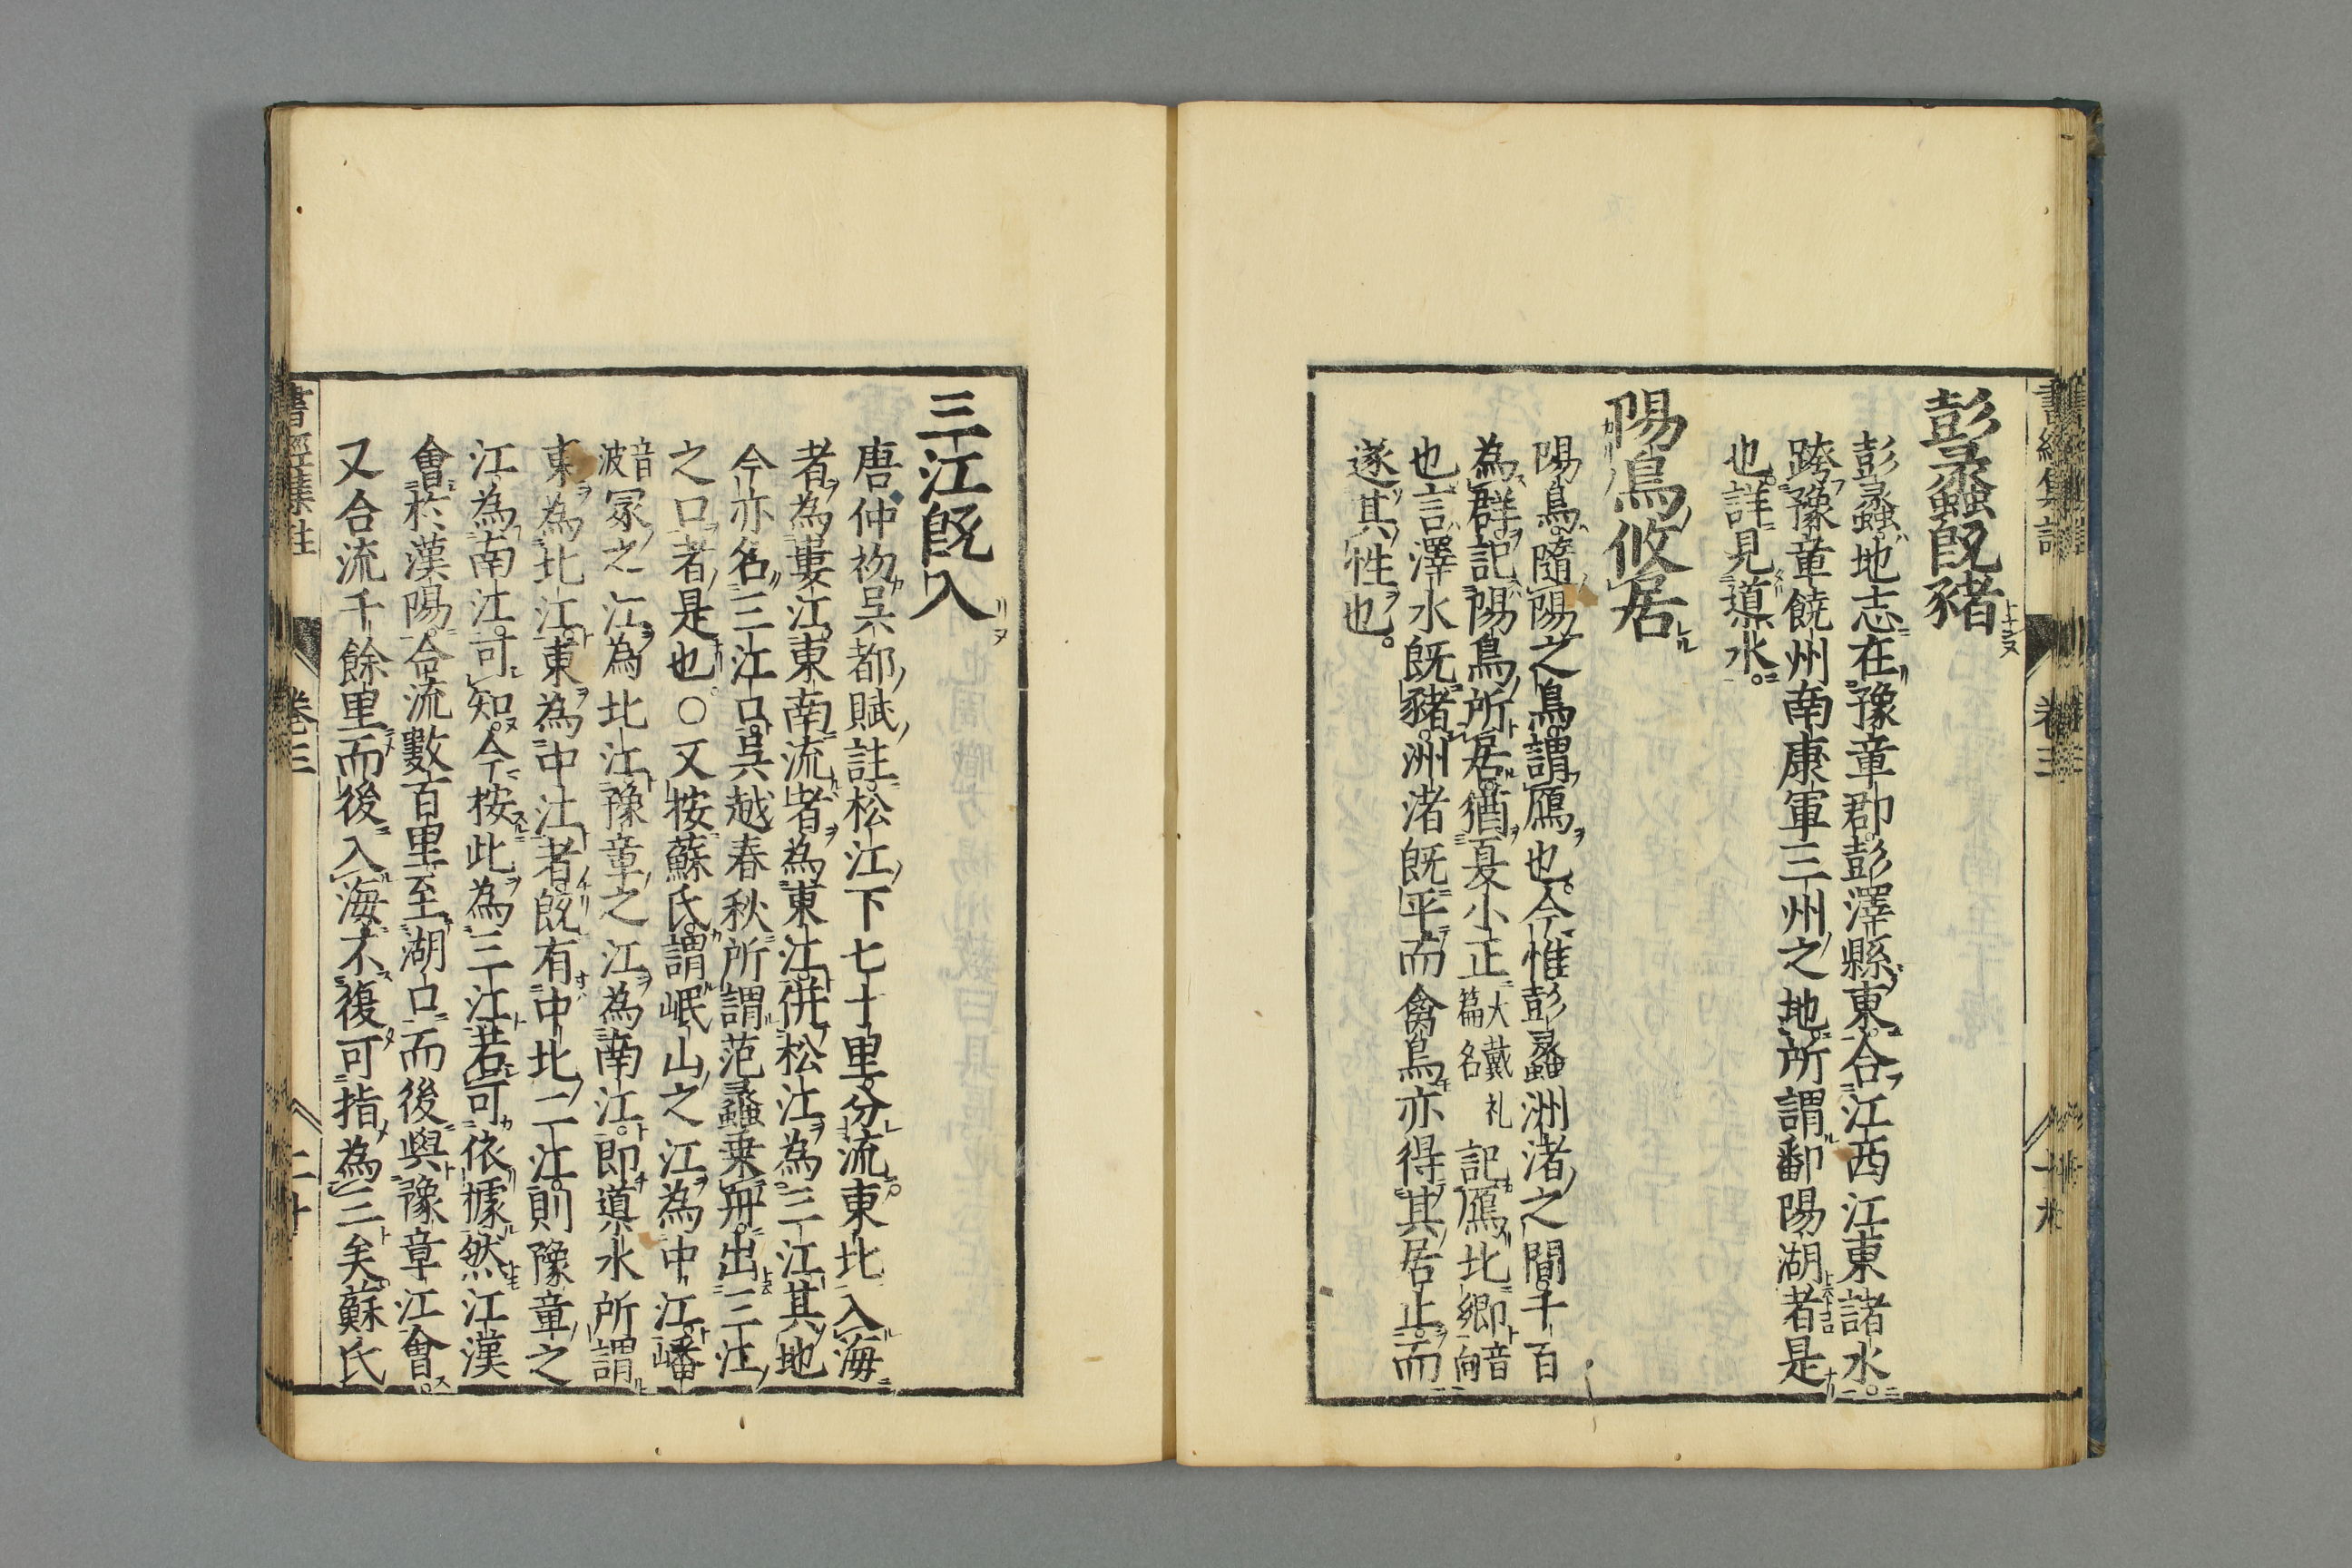 彭蠡既豬
彭蠡地志在豫章郡彭澤縣東合江西江東諸水
跨豫章饒州南康軍三州之地所謂鄱陽湖者是
也詳見導水
陽鳥攸居
陽鳥隨陽之鳥謂鴈也今惟彭蠡洲渚之間千百
為群記陽鳥所居猶夏小正大戴礼篇名記鴈北鄉音向
也言澤水既豬洲渚既平而禽鳥亦得其居止而
遂其性也
書經集註
卷三
十九
三江既入
唐仲初吳都賦註松江下七十里分流東北入海
者為婁江東南流者為東江併松江為三江其地
今亦名三江口吳越春秋所謂范蠡乗舟出三江
之口者是也○又按蘇氏謂岷山之江為中江嶓
音波冢之江為北江豫章之江為南江即導水所謂
東為北江東為中江者既有中北二江則豫章之
江為南江可知今按此為三江若可依據然江漢
會於漢陽合流數百里至湖口而後與豫章江會
又合流千餘里而後入海不復可指為三矣蘇氏
書經集註
卷三
二十